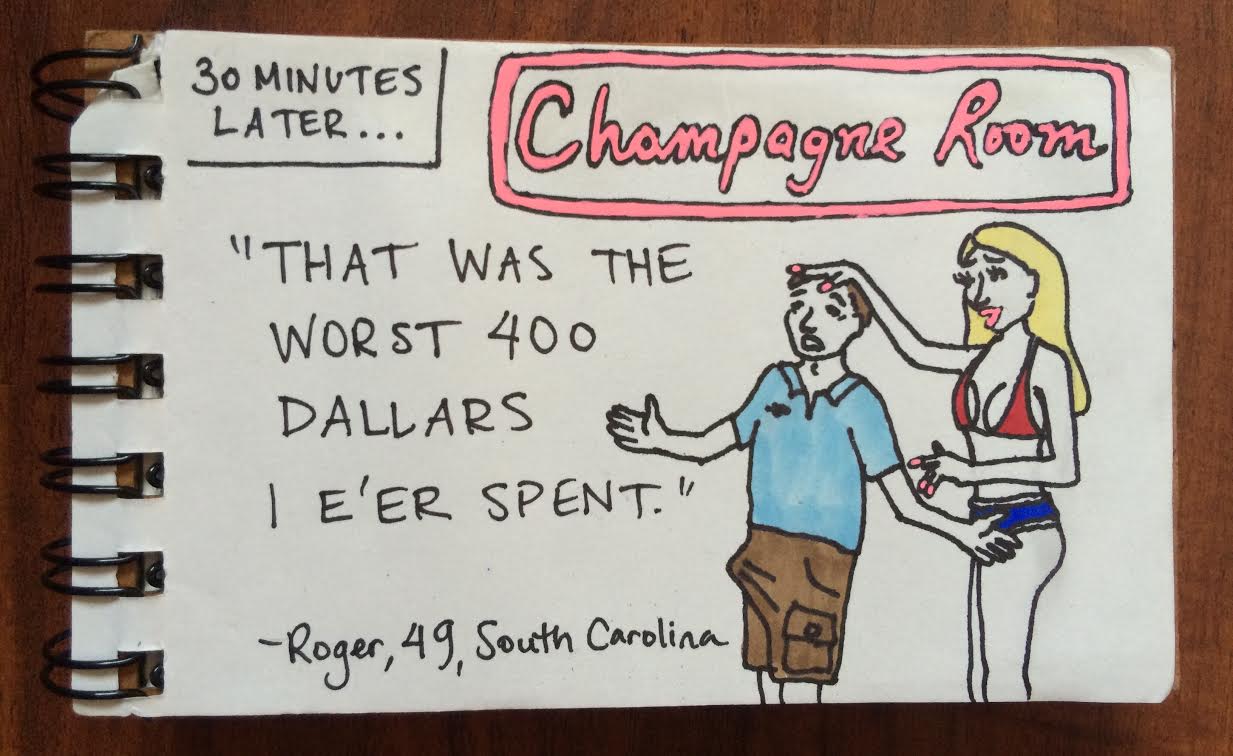 30 MINUTES
LATER...
Champagne Room
"THAT WAS THE
WORST 400
DALLARS
I E'ER SPENT."
-Roger, 49, South Carolina